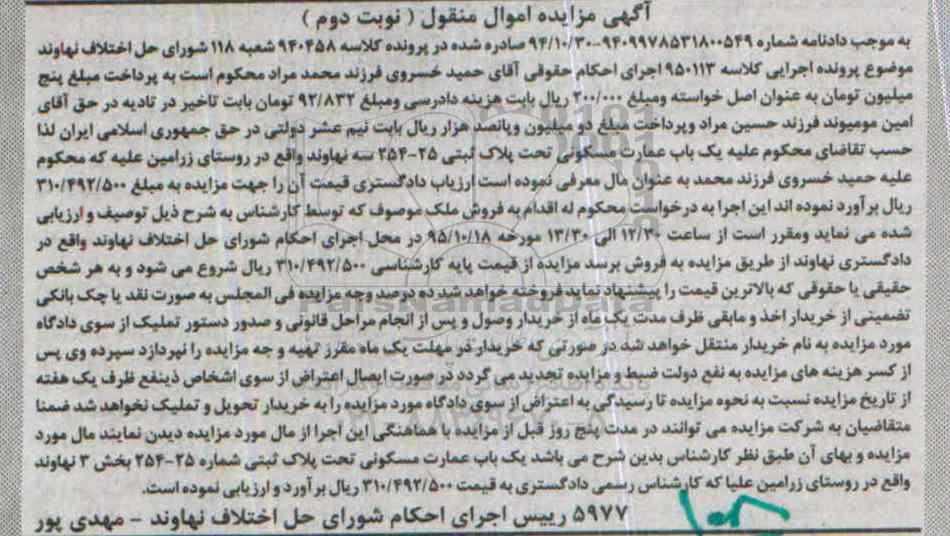 آگهی مزایده اموال منقول ( نوبت دوم )
به موجب دادنامه شماره ۹۴۰۹۹۷۸۵۳۱۸۰۰۵۴۹-۹۴/۱۰/۳۰ صادره شده در پرونده کلاسه ۹۴۰۴۵۸ شعبه ۱۱۸ شورای حل اختلاف نهاوند
موضوع پرونده اجرایی کلاسه ۹۵۰۱۱۳ اجرای احکام حقوقی آقای حمید خسروی فرزند محمد مراد محکوم است به پرداخت مبلغ پنج
میلیون تومان به عنوان اصل خواسته ومبلغ ۲۰۰/۰۰۰ ریال بابت هزینه دادرسی ومبلغ ۹۲/۸۳۲ تومان بابت تاخیر در تادیه در حق آقای
امین مومیوند فرزند حسین مراد وپرداخت مبلغ دو میلیون وپانصد هزار ریال بابت نیم عشر دولتی در حق جمهوری اسلامی ایران لذا
حسب تقاضای محکوم علیه یک باب عمارت مسکونی تحت پلاک ثبتی ۲۵-۲۵۴ سه نهاوند واقع در روستای زرامین علیه که محکوم
علیه حمید خسروی فرزند محمد به عنوان مال معرفی نموده است ارزیاب دادگستری قیمت آن را جهت مزایده به مبلغ ۳۱۰/۴۹۲/۵۰۰
ریال برآورد نموده اند این اجرا به درخواست محکوم له اقدام به فروش ملک موصوف که توسط کارشناس به شرح ذیل توصیف و ارزیابی
شده می نماید ومقرر است از ساعت ۱۲/۳۰ الی ۱۳/۳۰ مورخه ۹۵/۱۰/۱۸ در محل اجرای احکام شورای حل اختلاف نهاوند واقع در
دادگستری نهاوند از طریق مزایده به فروش برسد مزایده از قیمت پایه کارشناسی ۳۱۰/۴۹۲/۵۰۰ ریال شروع می شود و به هر شخص
حقیقی یا حقوقی که بالاترین قیمت را پیشنهاد نماید فروخته خواهد شد ده درصد وجه مزایده فی المجلس به صورت نقد یا چک بانکی
تضمینی از خریدار اخذ و مابقی ظرف مدت یک ماه از خریدار وصول و پس از انجام مراحل قانونی و صدور دستور تملیک از سوی دادگاه
مورد مزایده به نام خریدار منتقل خواهد شد در صورتی که خریدار در مهلت یک ماه مقرر تهیه و جه مزایده را نپردازد سپرده وی پس
از کسر هزینه های مزایده به نفع دولت ضبط و مزایده تجدید می گردد در صورت ایصال اعتراض از سوی اشخاص ذینفع ظرف یک هفته
از تاریخ مزایده نسبت به نحوه مزایده تا رسیدگی به اعتراض از سوی دادگاه مورد مزایده را به خریدار تحویل و تملیک نخواهد شد ضمنا
متقاضیان به شرکت مزایده می توانند در مدت پنج روز قبل از مزایده با هماهنگی این اجرا از مال مورد مزایده دیدن نمایند مال مورد
مزایده و بهای آن طبق نظر کارشناس بدین شرح می باشد یک باب عمارت مسکونی تحت پلاک ثبتی شماره ۲۵-۲۵۴ بخش ۳ نهاوند
واقع در روستای زرامین علیا که کارشناس رسمی دادگستری به قیمت ۳۱۰/۴۹۲/۵۰۰ ریال برآورد و ارزیابی نموده است.
۵۹۷۷ رییس اجرای احکام شورای حل اختلاف نهاوند - مهدی پور